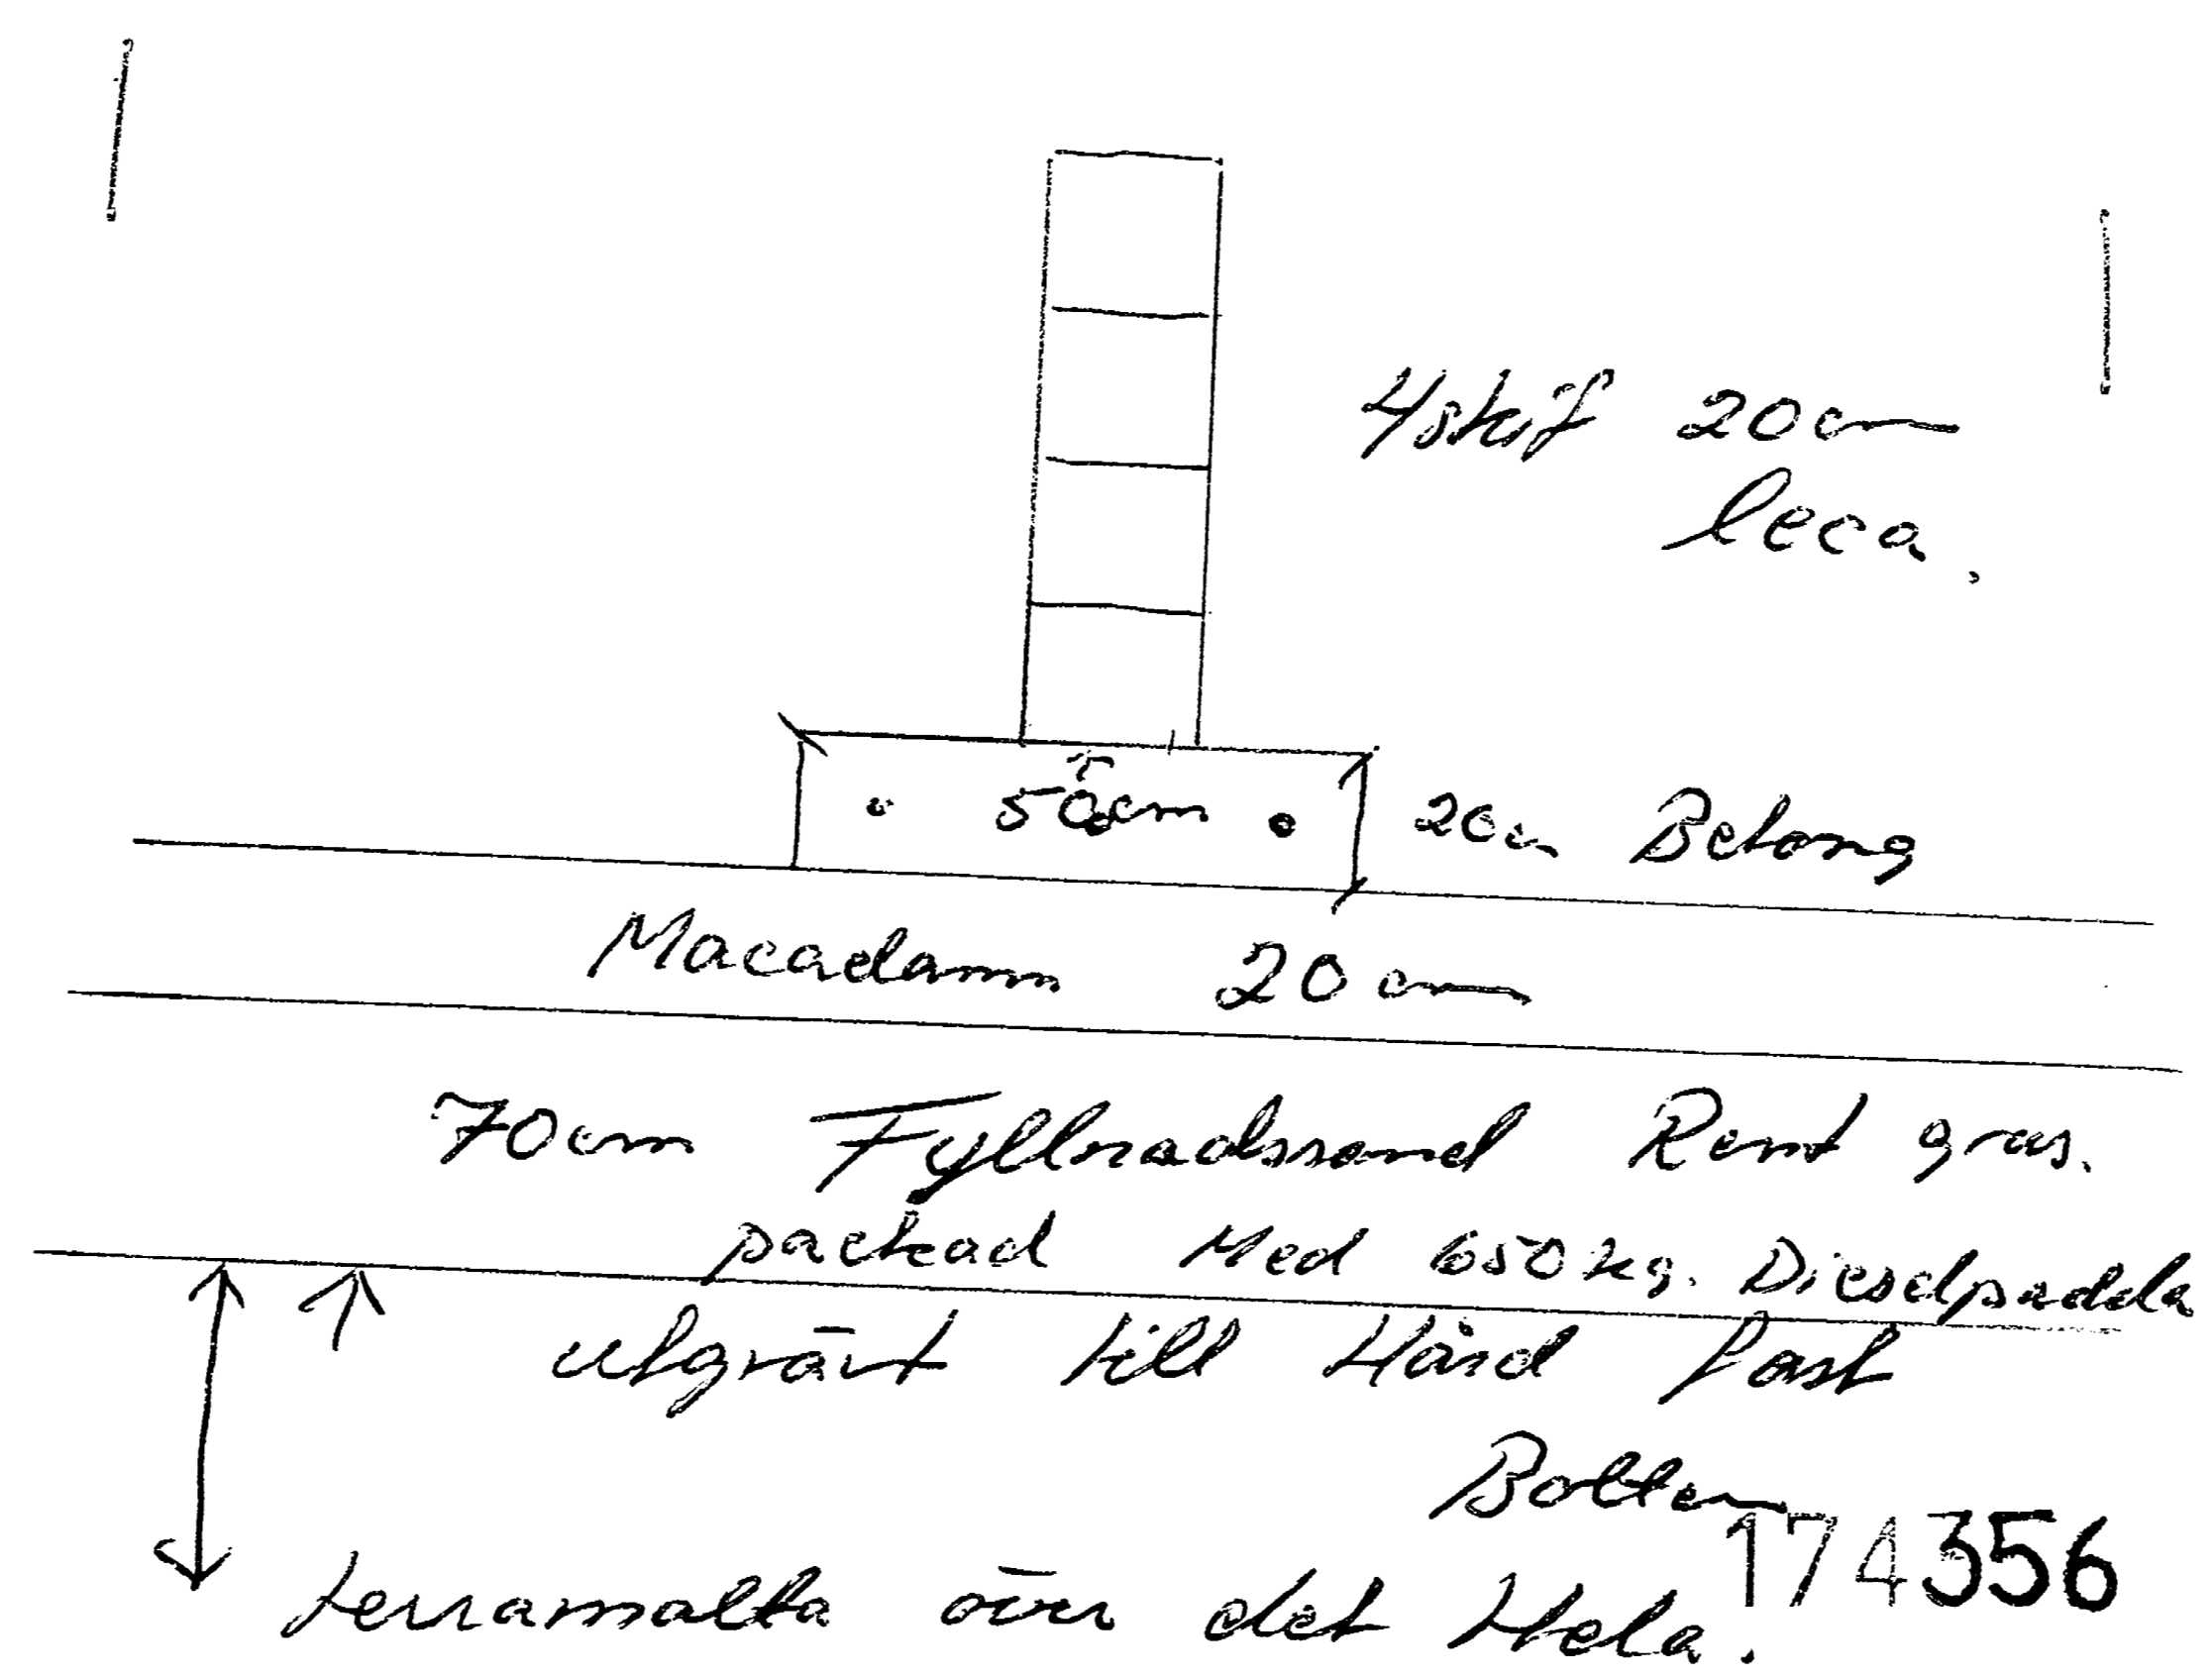 4 skif 20 cm
leca.
50 cm
20 cm Betong
Macadamm 20 cm
70 cm Fyllnadssand Rent grus.
packad Med 650 kg. Dieselpadda
utgrävt till Hård fast
Botten
174356
terramatta över det Hela.